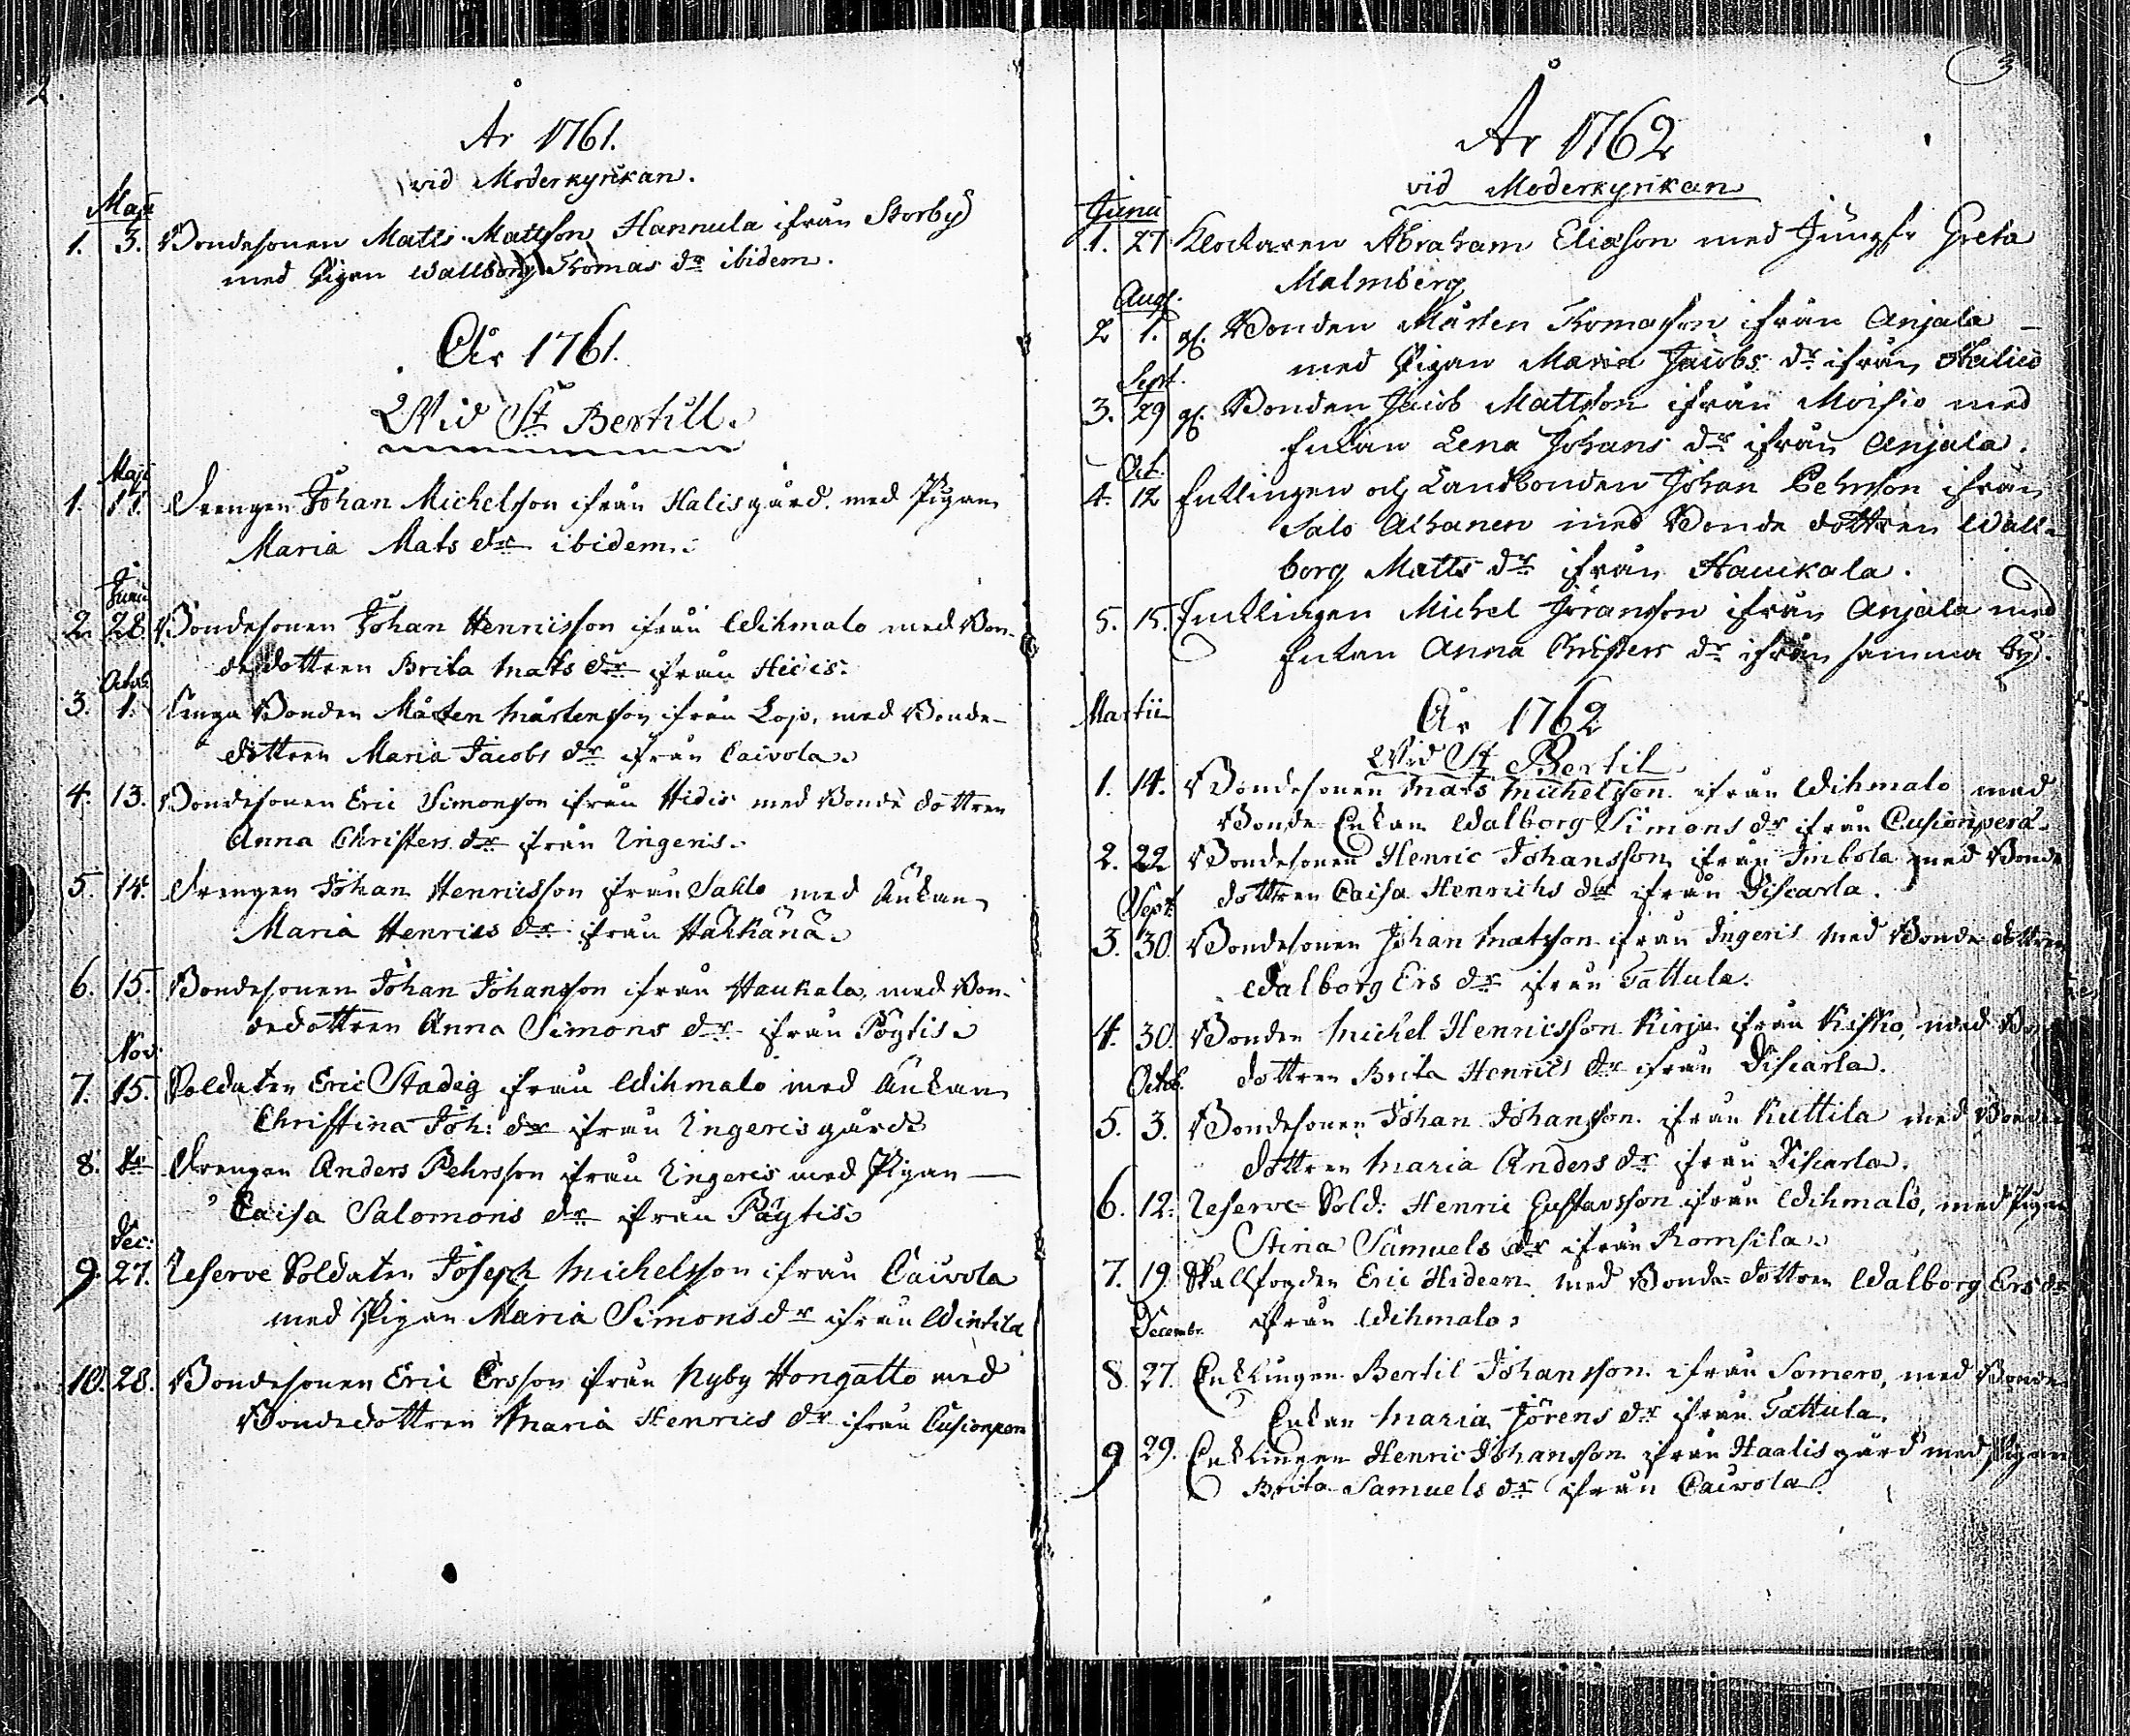 2.
År 1761.
vid Moderkyrkan.
Maji
1. 3. Bondesonen Matts Mattson Hannula ifrån Storby
med Pigan Wallborg Thomas dr ibidem.
År 1761.
Wid St Bertill.
Maji
1. 17. Drengen Johan Michelsson ifrån Halisgård med Pigan
Maria Mats dr ibidem.
Junii
2. 28. Bondesonen Johan Henricsson ifrån Wihmalo med Bon-
dedottren Brita Mats dr ifrån Hidis.
Octob:
3. 1. Unga Bonden Mårten Mårtensson ifrån Lojo, med Bonde-
dottren Maria Jacobs dr ifrån Caivola.
4. 13. Bondesonen Eric Simonsson ifrån Hidis med Bonde dottren
Anna Christers dr ifrån Ingeris.
5. 14. Drengen Johan Henricsson ifrån Sahlo med Änkan
Maria Henrics dr ifrån Häkkänä.
6. 15. Bondesonen Johan Johansson ifrån Haukala, med Bon-
dedottren Anna Simons dr ifrån Pöytis.
Nov:
7. 15. Soldaten Eric Stadig ifrån Wihmalo med Änkan
Christina Joh: dr ifrån Ingeris gård
8. dr Drengen Anders Pehrsson ifrån Ingeris med Pigan
Caisa Salomons dr ifrån Pöytis
Dec:
9. 27. Reserve Soldaten Joseph Michelsson ifrån Caivola
med Pigan Maria Simons dr ifrån Wintila
10. 28. Bondesonen Eric Ersson ifrån Nyby Hongatto med
Bondedottren Maria Henrics dr ifrån Cusionperä
3
År 1762
vid Moderkyrkan
Junii
1. 27 Klockaren Abraham Eliasson med Jungfr Greta
Malmberg
Aug.
2 1. gl. Bonden Mårten Thomasson ifrån Anjala
med Pigan Maria Jacobs dr ifrån
Sept.
3. 29 gl. Bonden Jacob Mattsson ifrån Moisio med
Enkan Lena Johans dr ifrån Anjala.
Oct.
4. 12 Enklingen och Landbonden Johan Pehrson ifrån
Salo Alhanen med Bonde dottren Wall-
borg Matts dr ifrån Haukala.
5. 15. Enklingen Michel Jöranson ifrån Anjala med
Enkan Anna Christers dr ifrån samma by.
Martii
År 1762
Wid St Bertil
1. 14. Bondesonen Mats Michelsson ifrån Wihmalo med
Bonde Enkan Walborg Simons dr ifrån Cusionperä.
2. 22 Bondesonen Henric Johansson ifrån Inbola med Bonde
dottren Caisa Henrichs dr ifrån Discarla.
Sept.
3. 30. Bondesonen Johan Matsson ifrån Ingeris med Bonde dottren
Walborg Ers dr ifrån Tattula.
4. 30. Bonden Michel Henricsson Kirja ifrån Kisko, med
dottren Brita Henrics dr ifrån Discarla.
Octob.
5. 3. Bondesonen Johan Johansson ifrån Kuttila med Bonde
dottren Maria Anders dr ifrån Discarla.
6. 12. Reserve Sold: Henric Gustavsson ifrån Wihmalo, med Pigan
Stina Samuels dr ifrån Romsila.
7. 19. Skallfogden Eric Hideen med Bonde dottren Walborg Ers dr
ifrån Wihmalo.
Decembr.
8. 27. Enklingen Bertil Johansson ifrån Somero, med Bonde
Enkan Maria Jörens dr ifrån Tattula.
9 29. Enklingen Henric Johansson ifrån Haalis gård med Pigan
Brita Samuels dr ifrån Caivola.